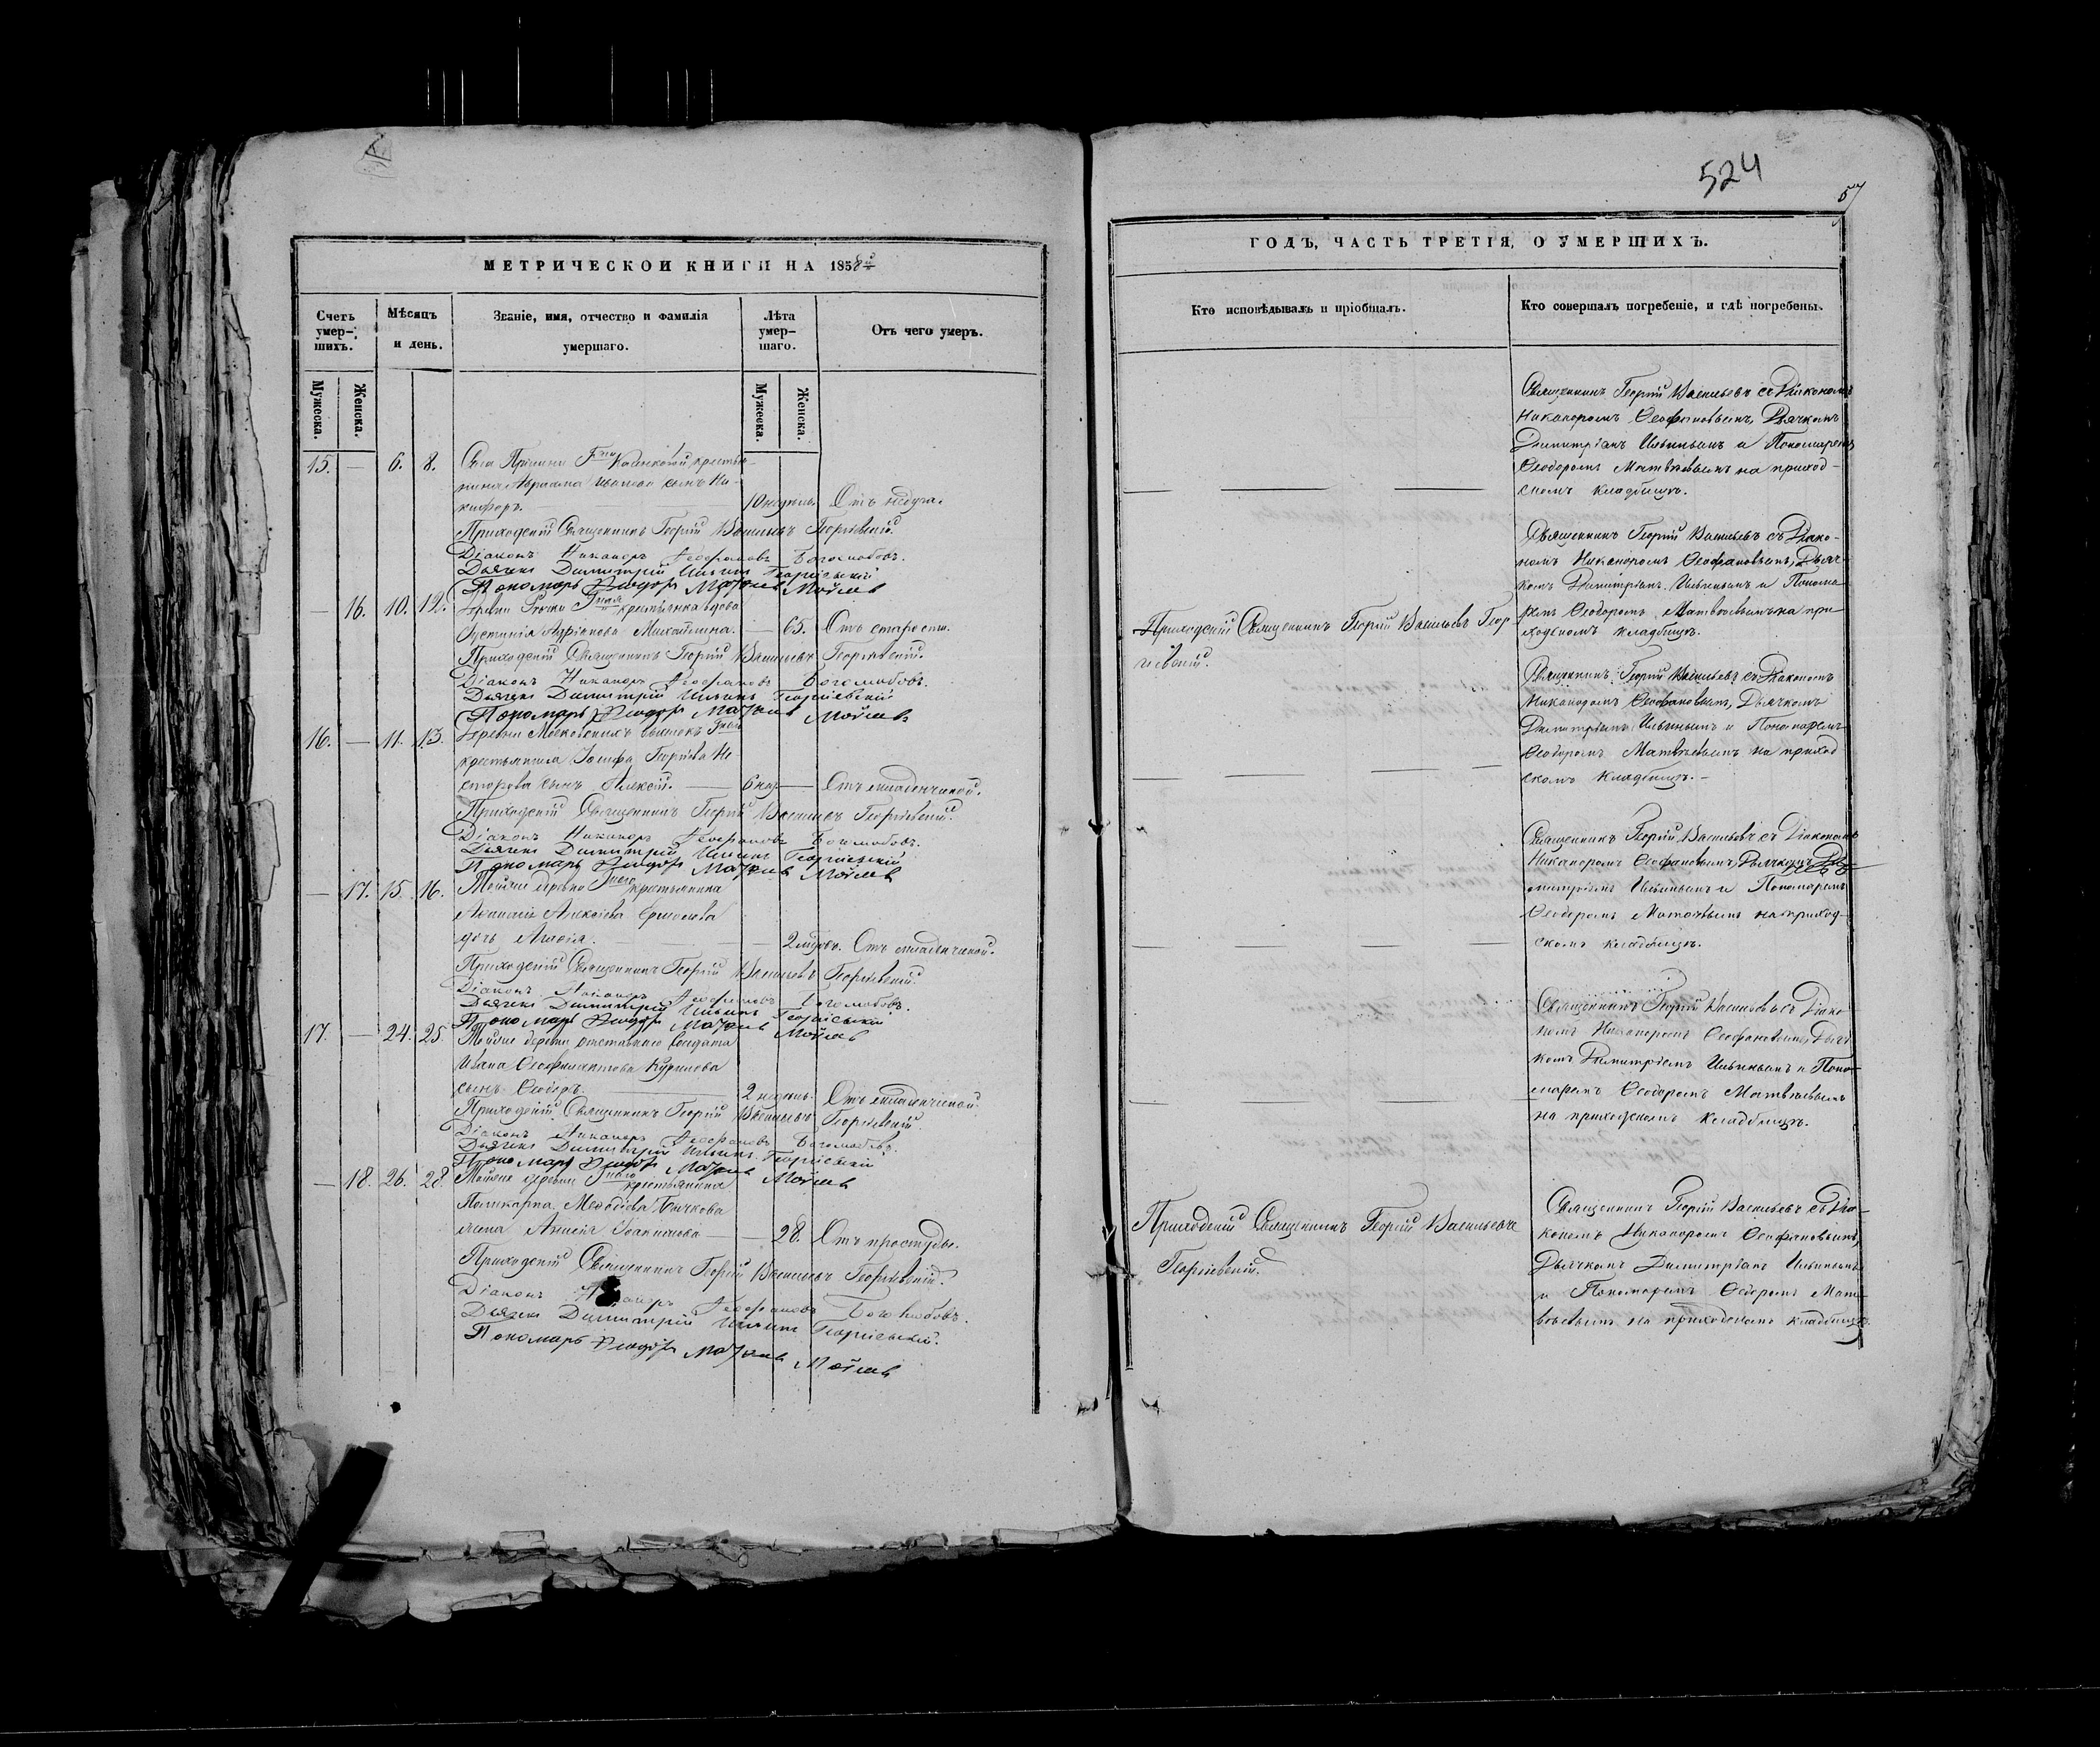 МЕТРИЧЕСКОЙ КНИГИ НА 1858й
Счетъ умер-шихъ.
Мѣсяцъ и день.
Званіе, имя, отчество и фамилія умершаго.
Лѣта умер-шаго.
Отъ чего умеръ.
Мужеска. Женска.
Мужеска. Женска.
15. — 6. 8.
крестья-
нина Авраама сынъ Ни-
кифоръ. 10 недѣль. Отъ
Приходскій Священникъ Георгій Васильевъ Георгіевскій.
Діаконъ Никаноръ Ѳеофановъ Боголюбовъ.
Дьячекъ Димитрій Ильинъ Георгіевскій
Пономарь Ѳеодоръ Матвѣевъ
— 16. 10. 12. Деревни крестьянка вдова
Михайлина. — 65. Отъ старости.
Приходскій Священникъ Георгій Васильевъ Георгіевскій.
Діаконъ Никаноръ Ѳеофановъ Боголюбовъ.
Дьячекъ Димитрій Ильинъ Георгіевскій
Пономарь Ѳеодоръ Матвѣевъ
16. — 11. 13. Деревни
крестьянина Іосифа Георгіева Не
сторова сынъ Алексій. — 6 — Отъ младенческой.
Приходскій Священникъ Георгій Васильевъ Георгіевскій.
Діаконъ Никаноръ Ѳеофановъ Боголюбовъ.
Дьячекъ Димитрій Ильинъ Георгіевскій
Пономарь Ѳеодоръ Матвѣевъ
— 17. 15. 16. Тойже деревни крестьянина
Алексіева Ермолаева
дочь Агафія. — 2 Отъ младенческой.
Приходскій Священникъ Георгій Васильевъ Георгіевскій.
Діаконъ Никаноръ Ѳеофановъ Боголюбовъ.
Дьячекъ Димитрій Ильинъ Георгіевскій
Пономарь Ѳеодоръ Матвѣевъ
17. — 24. 25. Тойже деревни отставнаго солдата
Ивана Ѳеофилактова
сынъ Ѳеодоръ. 2 недѣль. Отъ младенческой.
Приходскій Священникъ Георгій Васильевъ Георгіевскій.
Діаконъ Никаноръ Ѳеофановъ Боголюбовъ.
Дьячекъ Димитрій Ильинъ Георгіевскій
Пономарь Ѳеодоръ Матвѣевъ
— 18. 26. 28. Тойже деревни крестьянина
Поликарпа Меѳодіева Бычкова
жена — 28. Отъ простуды.
Приходскій Священникъ Георгій Васильевъ Георгіевскій.
Діаконъ Никаноръ Ѳеофановъ Боголюбовъ.
Дьячекъ Димитрій Ильинъ Георгіевскій.
Пономарь Ѳеодоръ Матвѣевъ
524
57
ГОДЪ, ЧАСТЬ ТРЕТІЯ, О УМЕРШИХЪ.
Кто исповѣдывалъ и пріобщалъ.
Кто совершалъ погребеніе, и гдѣ погребены.
Священникъ Георгій Васильевъ съ Діакономъ
Никаноромъ Ѳеофановымъ, Дьячкомъ
Димитріемъ Ильинымъ и Пономаремъ
Ѳеодоромъ Матвѣевымъ на приход-
скомъ кладбищѣ.
Священникъ Георгій Васильевъ съ Діако-
номъ Никаноромъ Ѳеофановымъ, Дьяч-
комъ Димитріемъ Ильинымъ и Понома-
ремъ Ѳеодоромъ Матвѣевымъ на при-
ходскомъ кладбищѣ.
Приходскій Священникъ Георгій Васильевъ Геор-
гіевскій.
Священникъ Георгій Васильевъ съ Діакономъ
Никаноромъ Ѳеофановымъ, Дьячкомъ
Димитріемъ Ильинымъ и Пономаремъ
Ѳеодоромъ Матвѣевымъ на приход
скомъ кладбищѣ. —
Священникъ Георгій Васильевъ съ Діакономъ
Никаноромъ Ѳеофановымъ, Дьячкомъ Ди-
митріемъ Ильинымъ и Пономаремъ
Ѳеодоромъ Матвѣевымъ на приход-
скомъ кладбищѣ.
Священникъ Георгій Васильевъ съ Діако
номъ Никаноромъ Ѳеофановымъ, Дьяч
комъ Димитріемъ Ильинымъ и Поно-
маремъ Ѳеодоромъ Матвѣевымъ
на приходскомъ кладбищѣ.
Приходскій Священникъ Георгій Васильевъ
Георгіевскій.
Священникъ Георгій Васильевъ съ Діа-
кономъ Никаноромъ Ѳеофановымъ,
Дьячкомъ Димитріемъ Ильинымъ
и Пономаремъ Ѳеодоромъ Мат-
вѣевымъ на приходскомъ кладбищѣ.